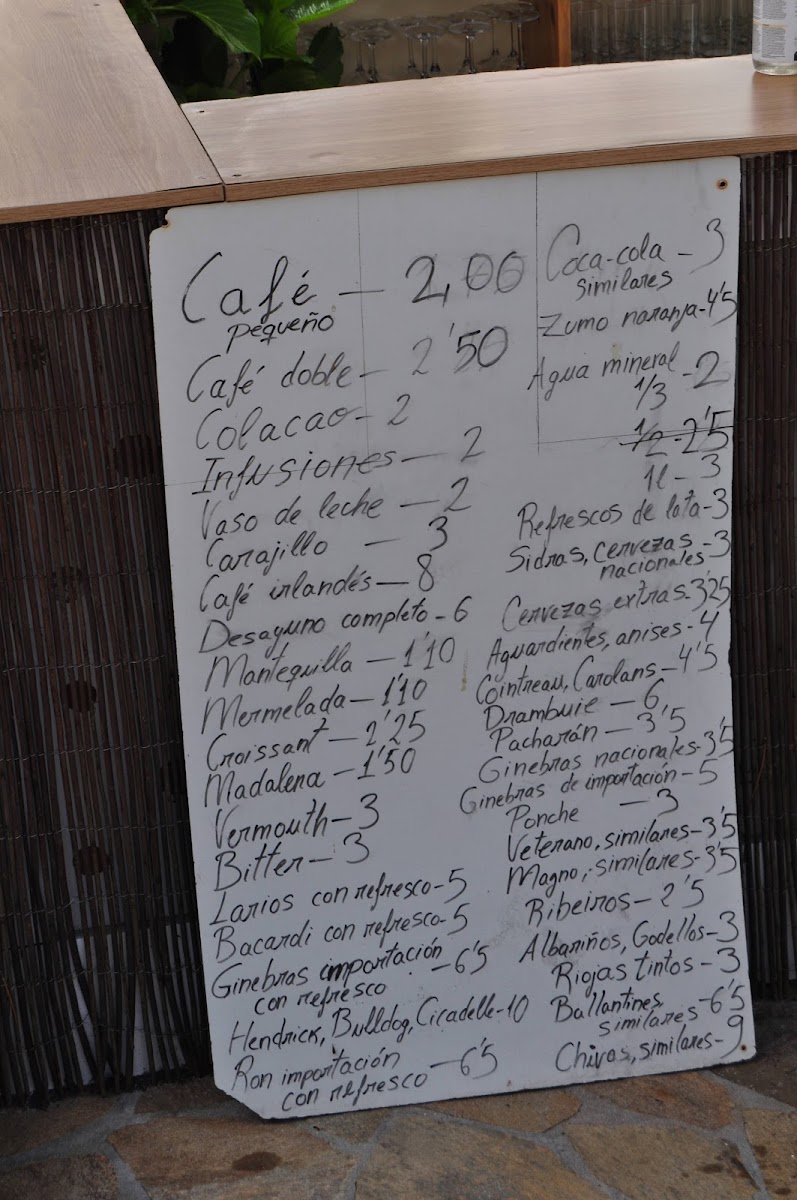 Café — 2,00
pequeño
Café doble — 2'50
Colacao - 2
Infusiones — 2
Vaso de leche — 2
Carajillo — 3
Café irlandés — 8
Desayuno completo - 6
Mantequilla — 1'10
Mermelada — 1'10
Croissant — 2'25
Madalena — 1'50
Vermouth - 3
Bitter - 3
Larios con refresco - 5
Bacardi con refresco - 5
Ginebras importación
con refresco — 6'5
Hendrick, Bulldog, Cicadelle - 10
Ron importación
con refresco — 6'5
Coca-cola - 3
similares
Zumo naranja - 4'5
Agua mineral
1/3 - 2
1/2 - 2'5
1l - 3
Refrescos de lata - 3
Sidras, cervezas
nacionales - 3
Cervezas extras - 3'25
Aguardientes, anises - 4
Cointreau, Carolans - 4'5
Drambuie — 6
Pacharán — 3'5
Ginebras nacionales - 3'5
Ginebras de importación - 5
Ponche — 3
Veterano, similares - 3'5
Magno, similares - 3'5
Ribeiros - 2'5
Albariños, Godellos - 3
Riojas tintos - 3
Ballantines,
similares - 6'5
Chivas, similares - 9